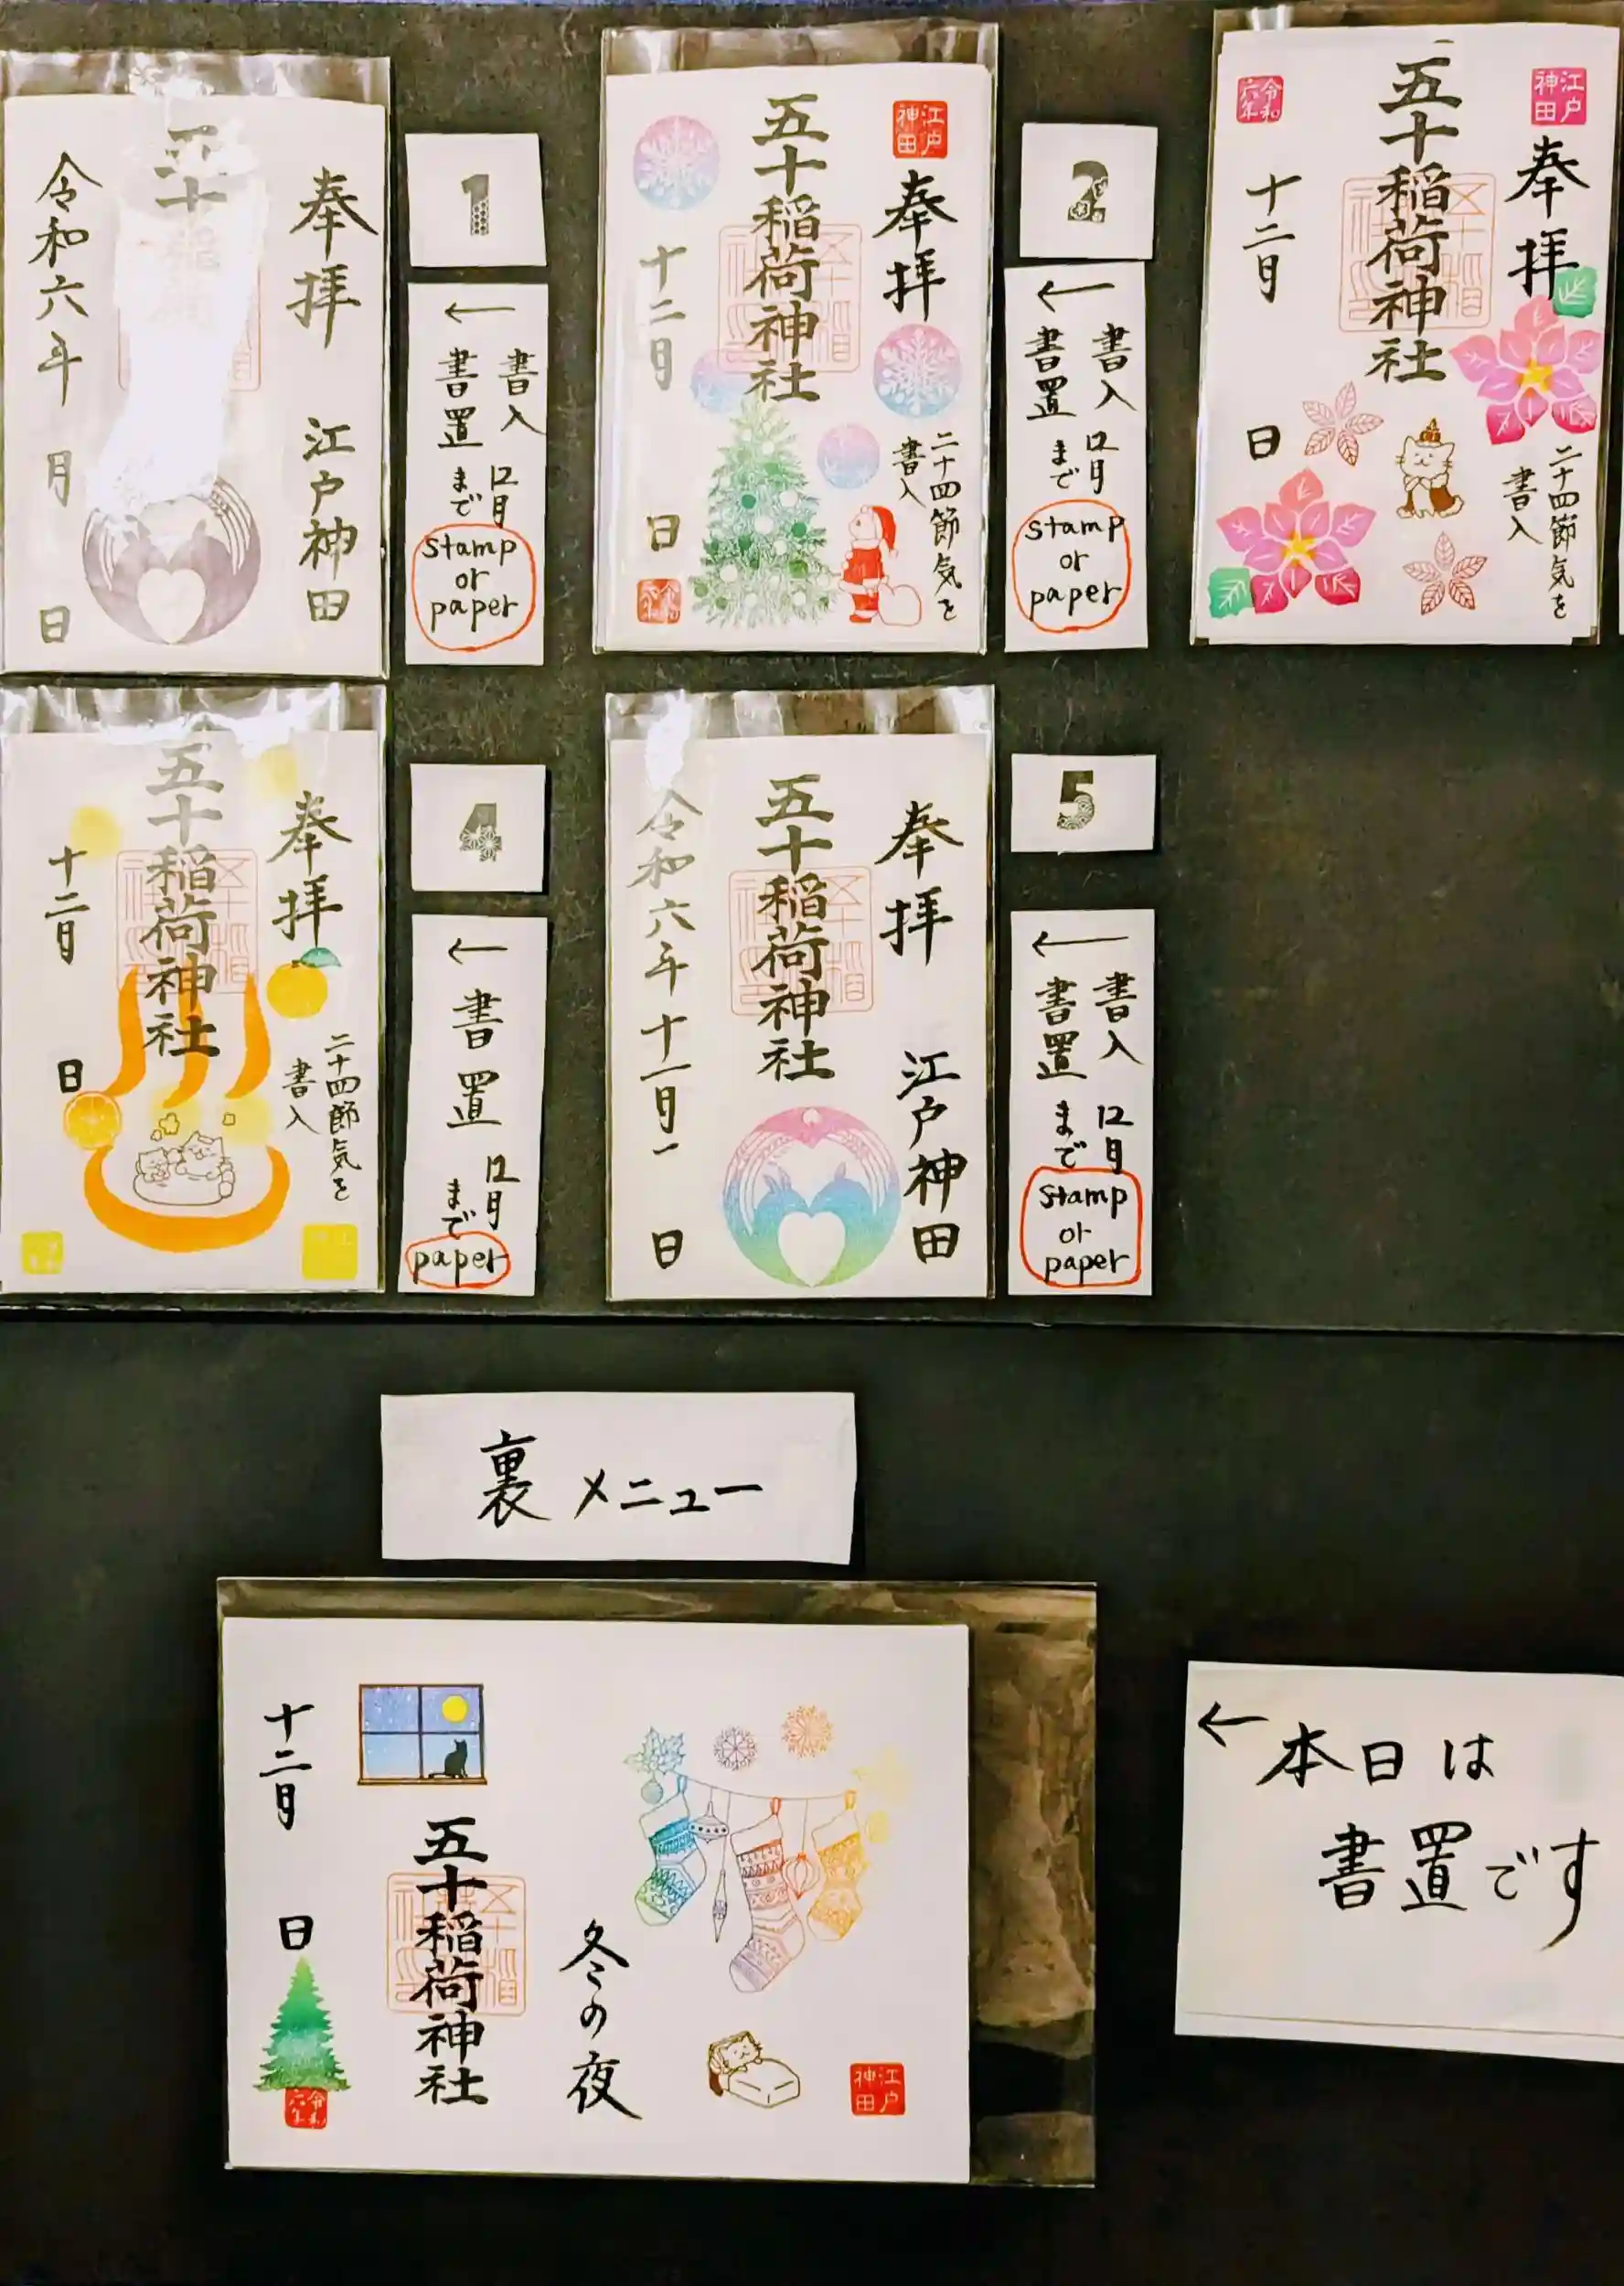 奉拝
江戸神田
五十稲荷
令和六年 月 日
1
←
書入
書置
12月
まで
stamp
or
paper
江戸
神田
奉拝
二十四節気を
書入
五十稲荷神社
十二月 日
2
←
書入
書置
12月
まで
stamp
or
paper
江戸
神田
奉拝
二十四節気を
書入
五十稲荷神社
令和
六年
十二月 日
奉拝
二十四節気を
書入
五十稲荷神社
十二月 日
4
←
書置
12月
まで
paper
奉拝
江戸神田
五十稲荷神社
令和六年十一月一 日
5
←
書入
書置
12月
まで
stamp
or
paper
裏メニュー
江戸
神田
冬の夜
五十稲荷神社
十二月 日
令和
六年
←本日は
書置です